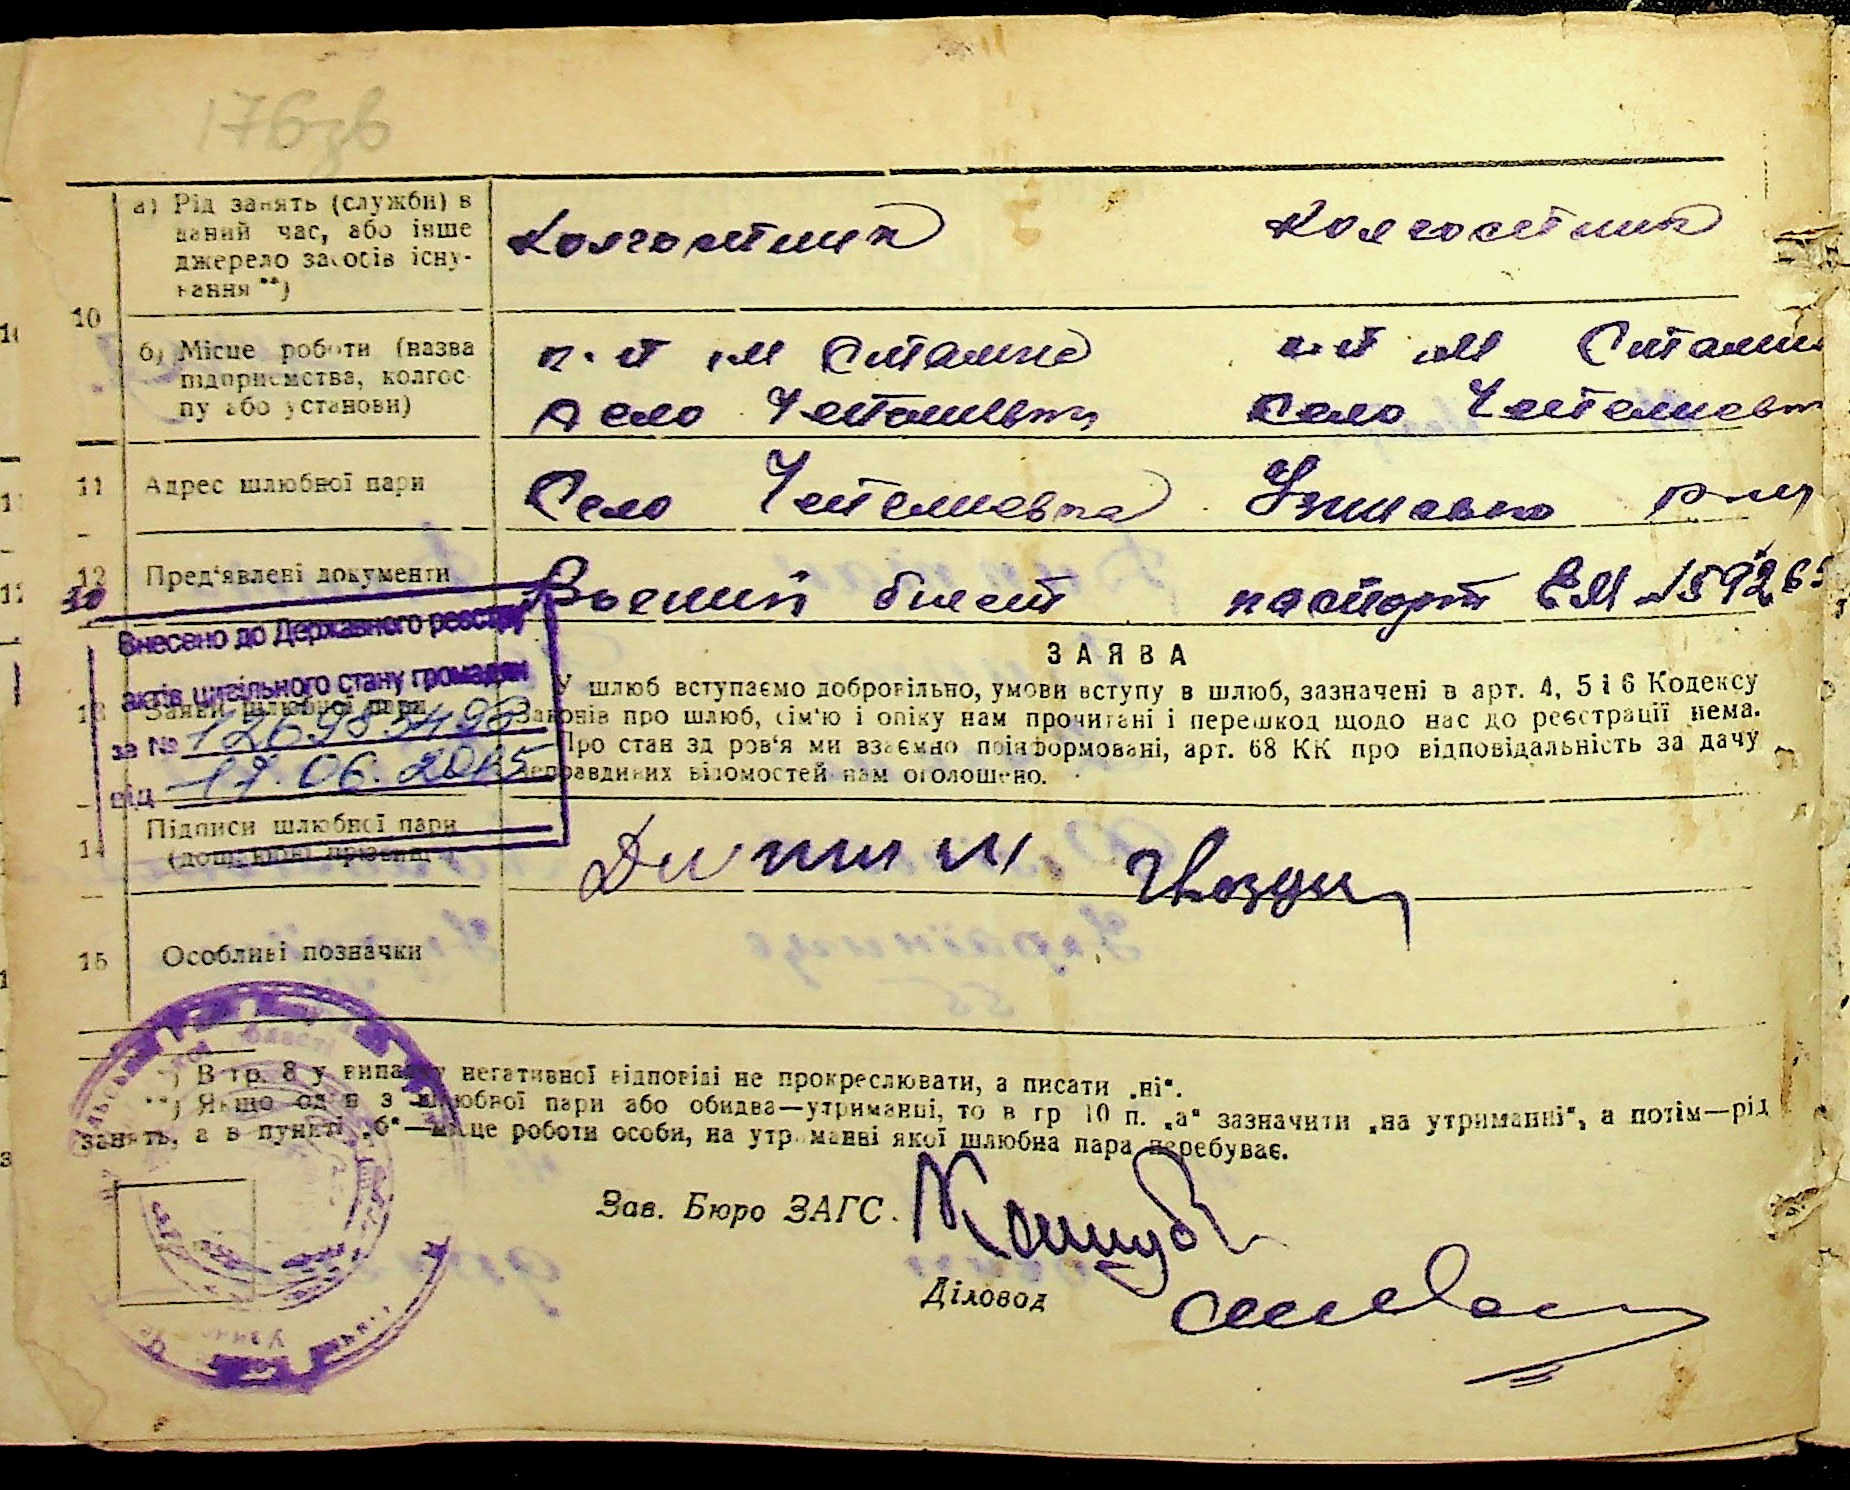 176зв
а) Рід занять (служби) в
даний час, або інше
джерело засобів існу-
вання **)
Колгоспник Колгоспник
10
б) Місце роботи (назва
підприємства, колгос-
пу або установи)
к-п ім Сталіна к-п ім Сталін
село село
11 Адрес шлюбної пари
Село
12 Пред'явлені документи
Воєний билет паспорт ЕМ №
Внесено до Державного реєстру
актів цивільного стану громадян
за №
від 17.06.2015
ЗАЯВА
13 Заяви шлюбної пари
У шлюб вступаємо добровільно, умови вступу в шлюб, зазначені в арт. 4, 5 і 6 Кодексу
Законів про шлюб, сім'ю і опіку нам прочитані і перешкод щодо нас до реєстрації нема.
Про стан здоров'я ми взаємно поінформовані, арт. 68 КК про відповідальність за дачу
неправдивих відомостей нам оголошено.
14 Підписи шлюбної пари
(дошлюбні прізвища)
15 Особливі позначки
*) В гр. 8 у випадку негативної відповіді не прокреслювати, а писати „ні“.
**) Якщо один з шлюбної пари або обидва—утриманці, то в гр 10 п. „а“ зазначити „на утриманні“, а потім—рід
занять, а в пункті „б“—місце роботи особи, на утриманні якої шлюбна пара перебуває.
Зав. Бюро ЗАГС.
Діловод